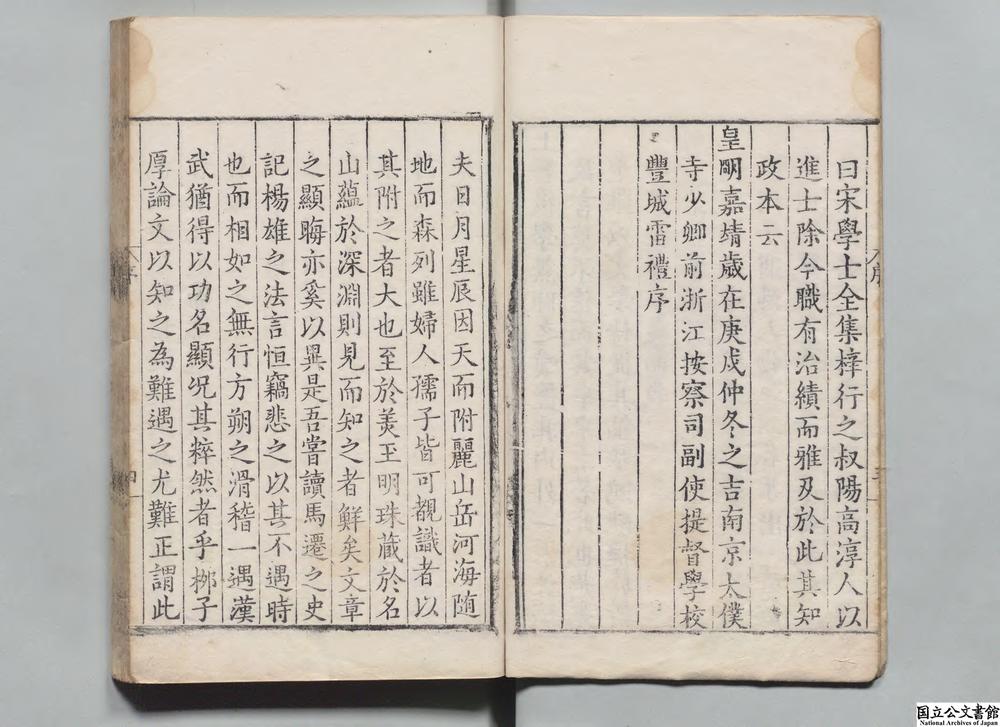 曰宋學士全集梓行之叔陽高淳人以
進士除今職有治績而雅及於此其知
政本云
皇明嘉靖歲在庚戌仲冬之吉南京太僕
寺少卿前浙江按察司副使提督學校
豐城雷禮序
夫日月星辰因天而附麗山岳河海随
地而森列雖婦人孺子皆可覩識者以
其附之者大也至於美玉明珠蔵於名
山蘊於深淵則見而知之者鮮矣文章
之顯晦亦奚以異是吾嘗讀馬遷之史
記楊雄之法言恒竊悲之以其不遇時
也而相如之無行方朔之滑稽一遇漢
武猶得以功名顯况其粹然者乎栁子
厚論文以知之為難遇之尤難正謂此
序
四
国立公文書館
National Archives of Japan